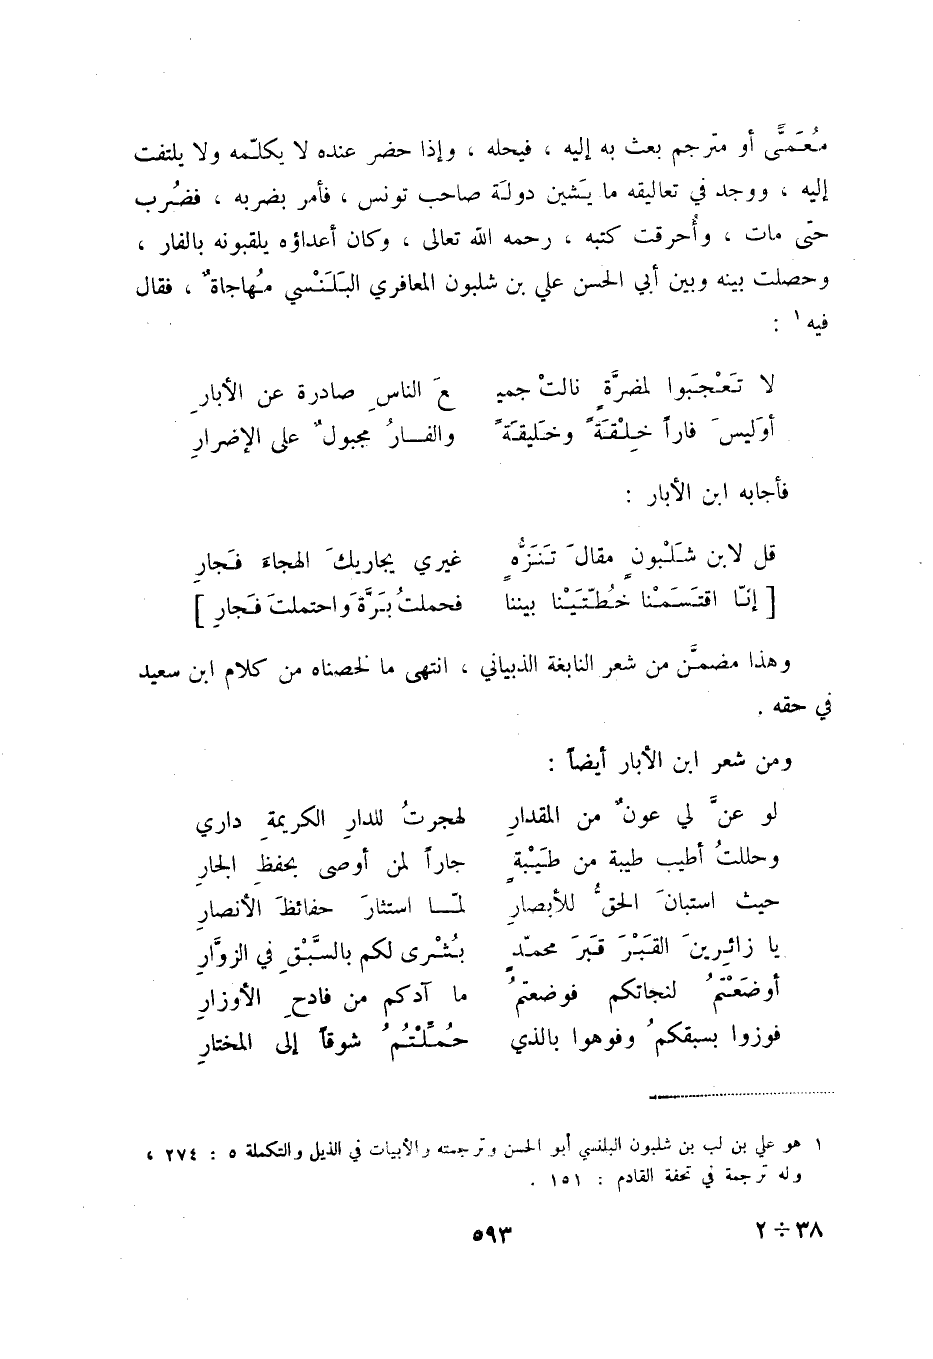 مُعَمًّى أو مترجم بعث به إليه ، فيحله ، وإذا حضر عنده لا يكلّمه ولا يلتفت
إليه ، ووجد في تعاليقه ما يَشين دولَة صاحب تونس ، فأمر بضربه ، فضُرب
حتّى مات ، وأُحرقت كتبه ، رحمه الله تعالى ، وكان أعداؤه يلقبونه بالفار ،
وحصلت بينه وبين أبي الحسن علي بن شلبون المعافري البَلَنْسي مُهاجاةٌ ، فقال
فيه ١ :
لا تَعْجَبوا لمضرَّةٍ نالتْ جميـ عَ الناسِ صادرة عن الأبارِ
أوَليسَ فاراً خِلْقَةً وخَليقَةً والفــارُ مجبولٌ على الإضرارِ
فأجابه ابن الأبار :
قل لابن شَلْبونٍ مقالَ تَنَزُّهٍ غيري يجاريكَ الهجاءَ فَجارِ
[ إنّا اقتَسَمْنا خُطّتَيْنا بيننا فحملتُ بَرَّةَ واحتملتَ فَجارِ ]
وهذا مضمَّن من شعر النابغة الذبياني ، انتهى ما لخصناه من كلام ابن سعيد
في حقه .
ومن شعر ابن الأبار أيضاً :
لو عنَّ لي عونٌ من المقدارِ لهجرتُ للدارِ الكريمةِ داري
وحللتُ أطيب طيبة من طَيْبةٍ جاراً لمن أوصى بحفظِ الجارِ
حيث استبانَ الحقُّ للأبصارِ لمّـــا استثارَ حفائظَ الأنصارِ
يا زائرينَ القبْرَ قبرَ محمّدٍ بُشْرى لكم بالسَّبْقِ في الزوَّارِ
أوضَعْتمُ لنجاتكم فوضعتمُ ما آدكم من فادحِ الأوزارِ
فوزوا بسبقكمُ وفوهوا بالذي حُمِّلْتُمُ شوقاً إلى المختارِ
١ هو علي بن لب بن شلبون البلنسي أبو الحسن وترجمته والأبيات في الذيل والتكملة ٥ : ٢٧٤ ،
وله ترجمة في تحفة القادم : ١٥١ .
٣٨ ÷ ٢ ٥٩٣